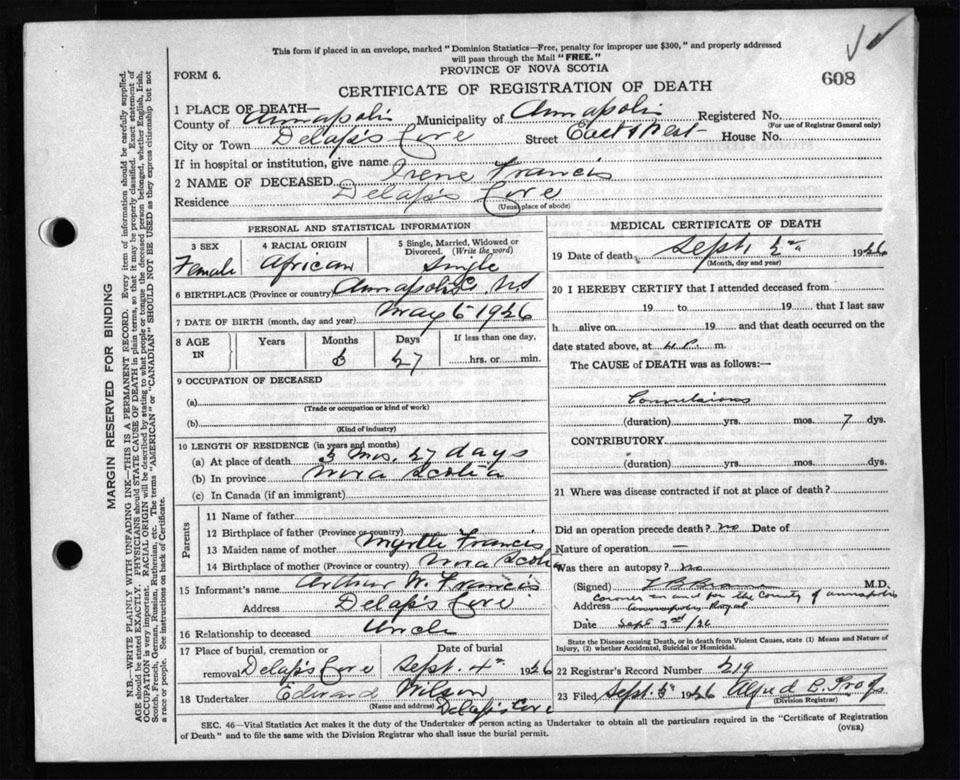 This form if placed in an envelope, marked "Dominion Statistics—Free, penalty for improper use $300," and properly addressed
will pass through the Mail "FREE."
PROVINCE OF NOVA SCOTIA
608
FORM 6.
CERTIFICATE OF REGISTRATION OF DEATH
1 PLACE OF DEATH—
County of Annapolis Municipality of Annapolis Registered No.
(For use of Registrar General only)
City or Town Delap's Cove Street House No.
If in hospital or institution, give name
2 NAME OF DECEASED Irene Francis
Residence Delap's Cove
(Usual place of abode)
PERSONAL AND STATISTICAL INFORMATION
3 SEX Female
4 RACIAL ORIGIN African
5 Single, Married, Widowed or Divorced. (Write the word) Single
6 BIRTHPLACE (Province or country) Annapolis Co. NS
7 DATE OF BIRTH (month, day and year) May 6 1926
8 AGE IN Years Months 3 Days 27 If less than one day, hrs. or min.
9 OCCUPATION OF DECEASED
(a)
(Trade or occupation or kind of work)
(b)
(Kind of industry)
10 LENGTH OF RESIDENCE (in years and months)
(a) At place of death 3 Mos. 27 days
(b) In province Nova Scotia
(c) In Canada (if an immigrant)
Parents
11 Name of father
12 Birthplace of father (Province or country)
13 Maiden name of mother Myrtle Francis
14 Birthplace of mother (Province or country) Nova Scotia
15 Informant's name Arthur W. Francis
Address Delap's Cove
16 Relationship to deceased Uncle
17 Place of burial, cremation or removal Delap's Cove Date of burial Sept. 4th 1926
18 Undertaker Edward Wilson
(Name and address) Delap's Cove
MEDICAL CERTIFICATE OF DEATH
19 Date of death Sept. 2nd 1926
(Month, day and year)
20 I HEREBY CERTIFY that I attended deceased from
19 to 19 that I last saw
h alive on 19 and that death occurred on the
date stated above, at P. m.
The CAUSE of DEATH was as follows:—
Convulsions
(duration) yrs. mos. 7 dys.
CONTRIBUTORY
(duration) yrs. mos. dys.
21 Where was disease contracted if not at place of death?
Did an operation precede death? no Date of
Nature of operation —
Was there an autopsy? no
(Signed) M.D.
Coroner in and for the County of Annapolis
Address Annapolis Royal
Date Sept 3rd/26
State the Disease causing Death, or in death from Violent Causes, state (1) Means and Nature of
Injury, (2) whether Accidental, Suicidal or Homicidal.
22 Registrar's Record Number 219
23 Filed Sept. 5 1926 Alfred B.
(Division Registrar)
SEC. 46—Vital Statistics Act makes it the duty of the Undertaker or person acting as Undertaker to obtain all the particulars required in the "Certificate of Registration
of Death" and to file the same with the Division Registrar who shall issue the burial permit.
(OVER)
MARGIN RESERVED FOR BINDING
N.B.—WRITE PLAINLY WITH UNFADING INK—THIS IS A PERMANENT RECORD. Every item of information should be carefully supplied.
AGE should be stated EXACTLY. PHYSICIANS should STATE CAUSE OF DEATH in plain terms, so that it may be properly classified. Exact statement of
OCCUPATION is very important. RACIAL ORIGIN will be described by stating to what people or tongue the deceased person belonged, whether English, Irish,
Scotch, French, German, Russian, Ruthenian, etc. The terms "AMERICAN" or "CANADIAN" SHOULD NOT BE USED as they express citizenship but not
a race or people. See instructions on back of Certificate.